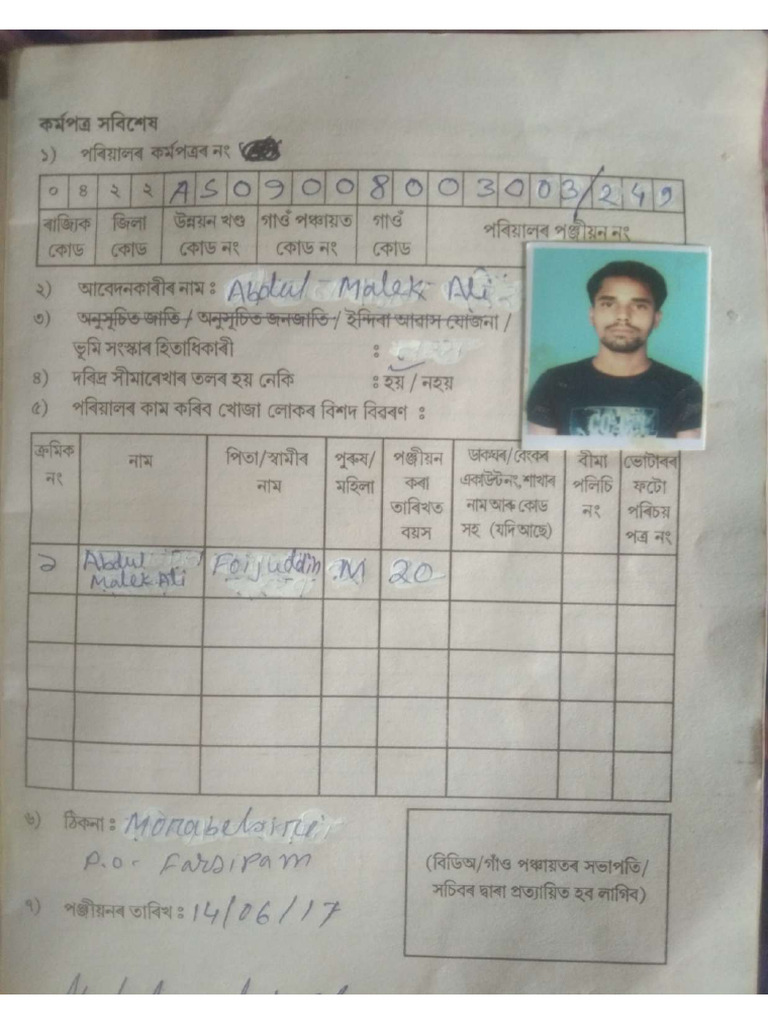 কৰ্মপত্ৰ সবিশেষ
১) পৰিয়ালৰ কৰ্মপত্ৰৰ নং
০ ৪ ২ ২ A S 0 9 0 0 8 0 0 3 0 0 3/2 4 9
ৰাজ্যিক কোড জিলা কোড উন্নয়ন খণ্ড কোড নং গাওঁ পঞ্চায়ত কোড নং গাওঁ কোড পৰিয়ালৰ পঞ্জীয়ন নং
২) আবেদনকাৰীৰ নাম : Abdul Malek Ali
৩) অনুসূচিত জাতি / অনুসূচিত জনজাতি / ইন্দিৰা আৱাস যোজনা /
ভূমি সংস্কাৰ হিতাধিকাৰী :
৪) দৰিদ্ৰ সীমাৰেখাৰ তলৰ হয় নেকি : হয় / নহয়
৫) পৰিয়ালৰ কাম কৰিব খোজা লোকৰ বিশদ বিৱৰণ :
ক্ৰমিক নং নাম পিতা/স্বামীৰ নাম পুৰুষ/মহিলা পঞ্জীয়ন কৰা তাৰিখত বয়স ডাকঘৰ/বেংকৰ একাউন্ট নং, শাখাৰ নাম আৰু কোড সহ (যদি আছে) বীমা পলিচি নং ভোটাৰৰ ফটো পৰিচয় পত্ৰ নং
১ Abdul Malek Ali Foijuddin M 20
৬) ঠিকনা :
P.O-
(বিডিঅ/গাঁও পঞ্চায়তৰ সভাপতি/
সচিবৰ দ্বাৰা প্ৰত্যায়িত হব লাগিব)
৭) পঞ্জীয়নৰ তাৰিখ : 14/06/17